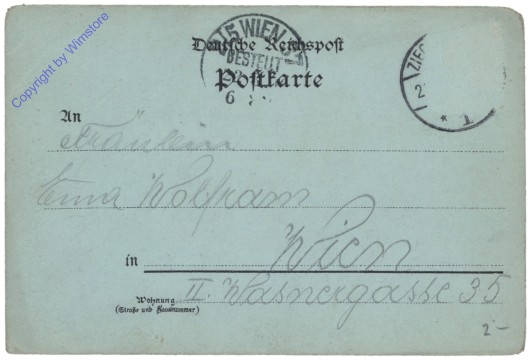 Copyright by Wimstore
5 WIEN
BESTELLT
6
ZIEG
2
* 1
Deutsche Reichspost
Postkarte
An
Fräulein
Wolfram
in Wien
Wohnung
(Straße und Hausnummer)
II. Wasnergasse 35
2-